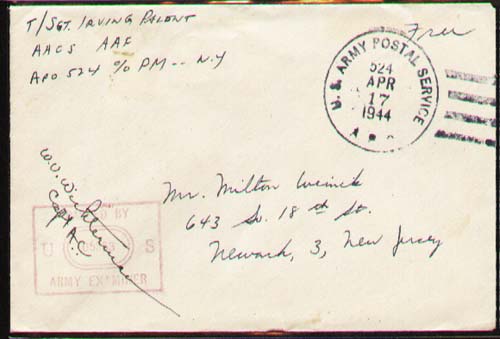 T/Sgt. Irving Palent
AACS AAF
APO 524 c/o PM -- N.Y
Free
U.S. ARMY POSTAL SERVICE
524
APR
17
1944
A.P.O.
Capt A.C.
BY
U S
ARMY EXAMINER
Mr. Milton Weinick
643 So. 18th St.
Newark, 3, New Jersey